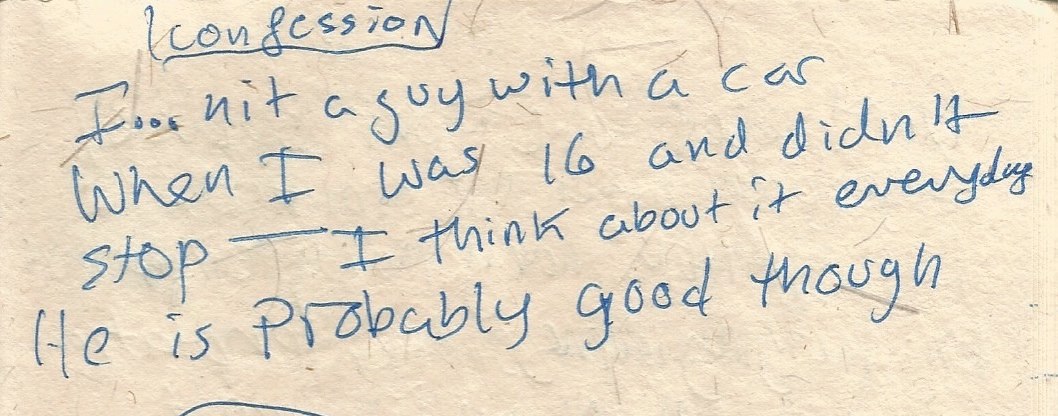 confession
I... hit a guy with a car
When I was 16 and didn't
stop — I think about it everyday
He is Probably good though